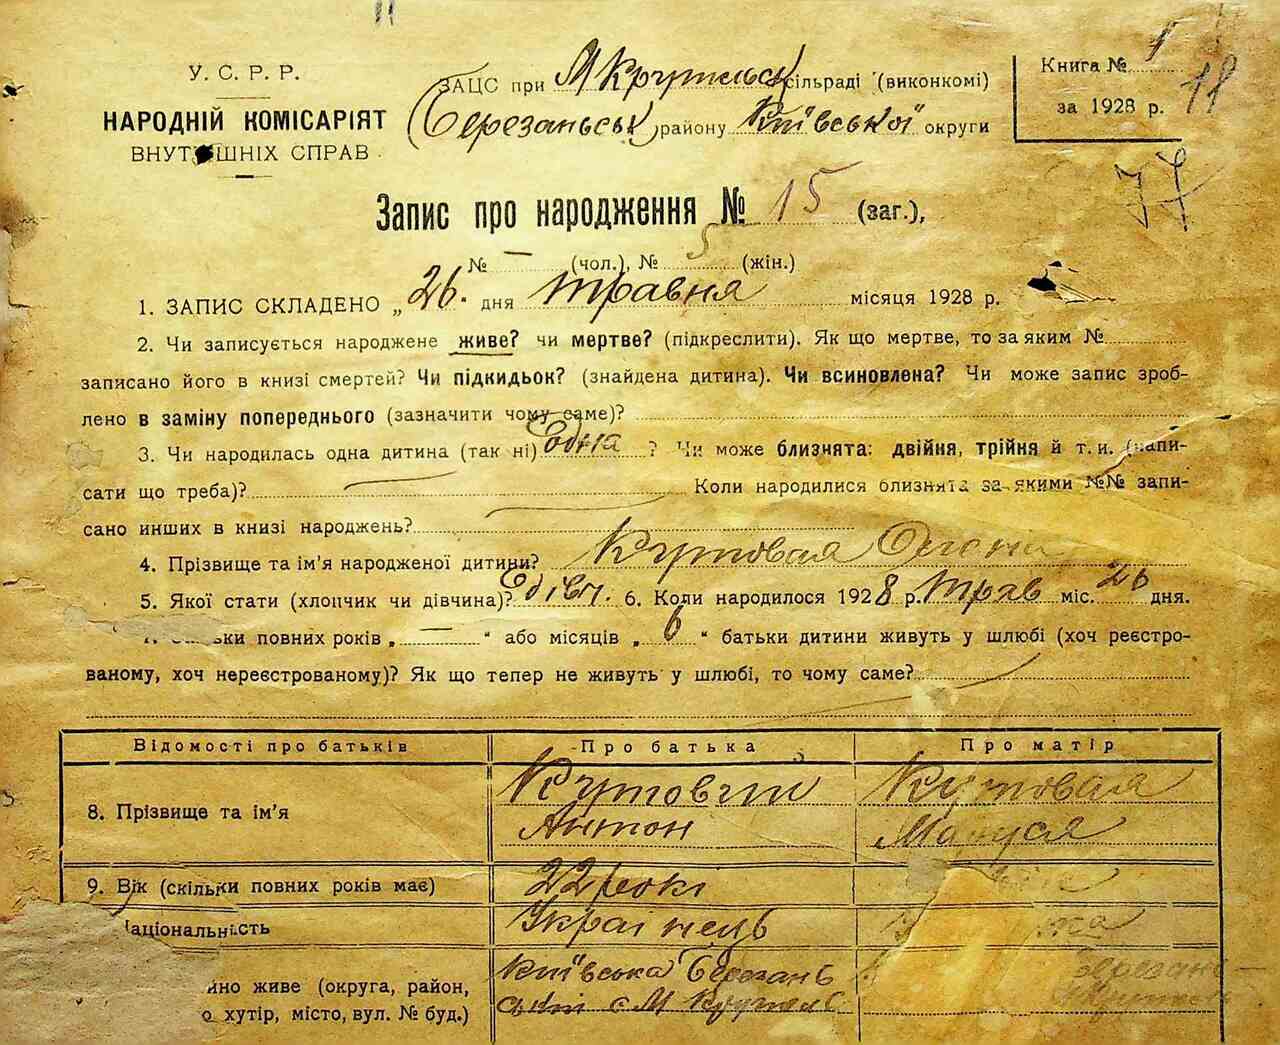 У. С. Р. Р.
НАРОДНІЙ КОМІСАРІЯТ
ВНУТ ШНІХ СПРАВ
ЗАЦС при М Крупельск сільраді (виконкомі)
Березанськ району Київської округи
Книга № 1
за 1928 р.
11
77
Запис про народження № 15 (заг.),
№ — (чол.), № 5 (жін.)
1. ЗАПИС СКЛАДЕНО „ 26. дня травня місяця 1928 р.
2. Чи записується народжене живе? чи мертве? (підкреслити). Як що мертве, то за яким №
записано його в книзі смертей? Чи підкидьок? (знайдена дитина). Чи всиновлена? Чи може запис зроб-
лено в заміну попереднього (зазначити чому саме)?
3. Чи народилась одна дитина (так ні) Одна ? Чи може близнята: двійня, трійня й т. и. (напи-
сати що треба)? Коли народилися близнята за якими №№ запи-
сано инших в книзі народжень?
4. Прізвище та ім'я народженої дитини? Кутовая
5. Якої стати (хлопчик чи дівчина)? дівч. 6. Коли народилося 1928 р. трав міс. 26 дня.
ки повних років „ — " або місяців „ 6 " батьки дитини живуть у шлюбі (хоч реєстро-
ваному, хоч нереєстрованому)? Як що тепер не живуть у шлюбі, то чому саме?
Відомості про батьків Про батька Про матір
8. Прізвище та ім'я Кутовий Кутовая
Антон Маруся
9. Вік (скільки повних років має) 22 роки
аціональність Українець
йно живе (округа, район, Київська Березан Березанс
о хутір, місто, вул. № буд.) ський с М Крупель